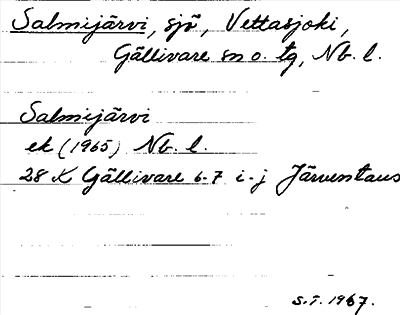 Salmijärvi, sjö, Vettasjoki,
Gällivare sn o. tg, Nb. l.
Salmijärvi
ek (1965) Nb. l.
28 K Gällivare 6-7 i-j Järventaus
S.I. 1967.